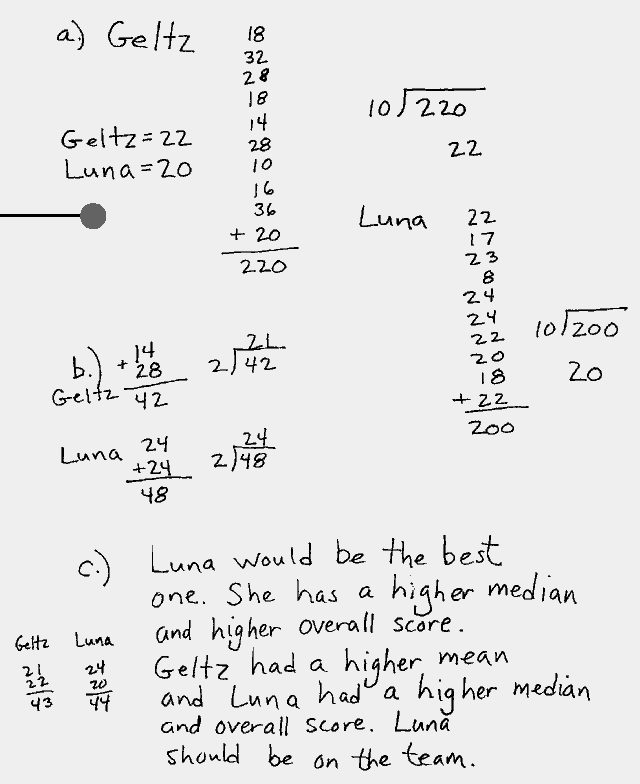 a.) Geltz
18
32
28
18
14
28
10
16
36
+ 20
220
Geltz = 22
Luna = 20
10)220
22
Luna
22
17
23
8
24
24
22
20
18
+ 22
200
10)200
20
b.) Geltz
+14
28
42
21
2)42
Luna
24
+24
48
24
2)48
c.) Luna would be the best
one. She has a higher median
and higher overall score.
Geltz had a higher mean
and Luna had a higher median
and overall score. Luna
should be on the team.
Geltz
21
22
43
Luna
24
20
44